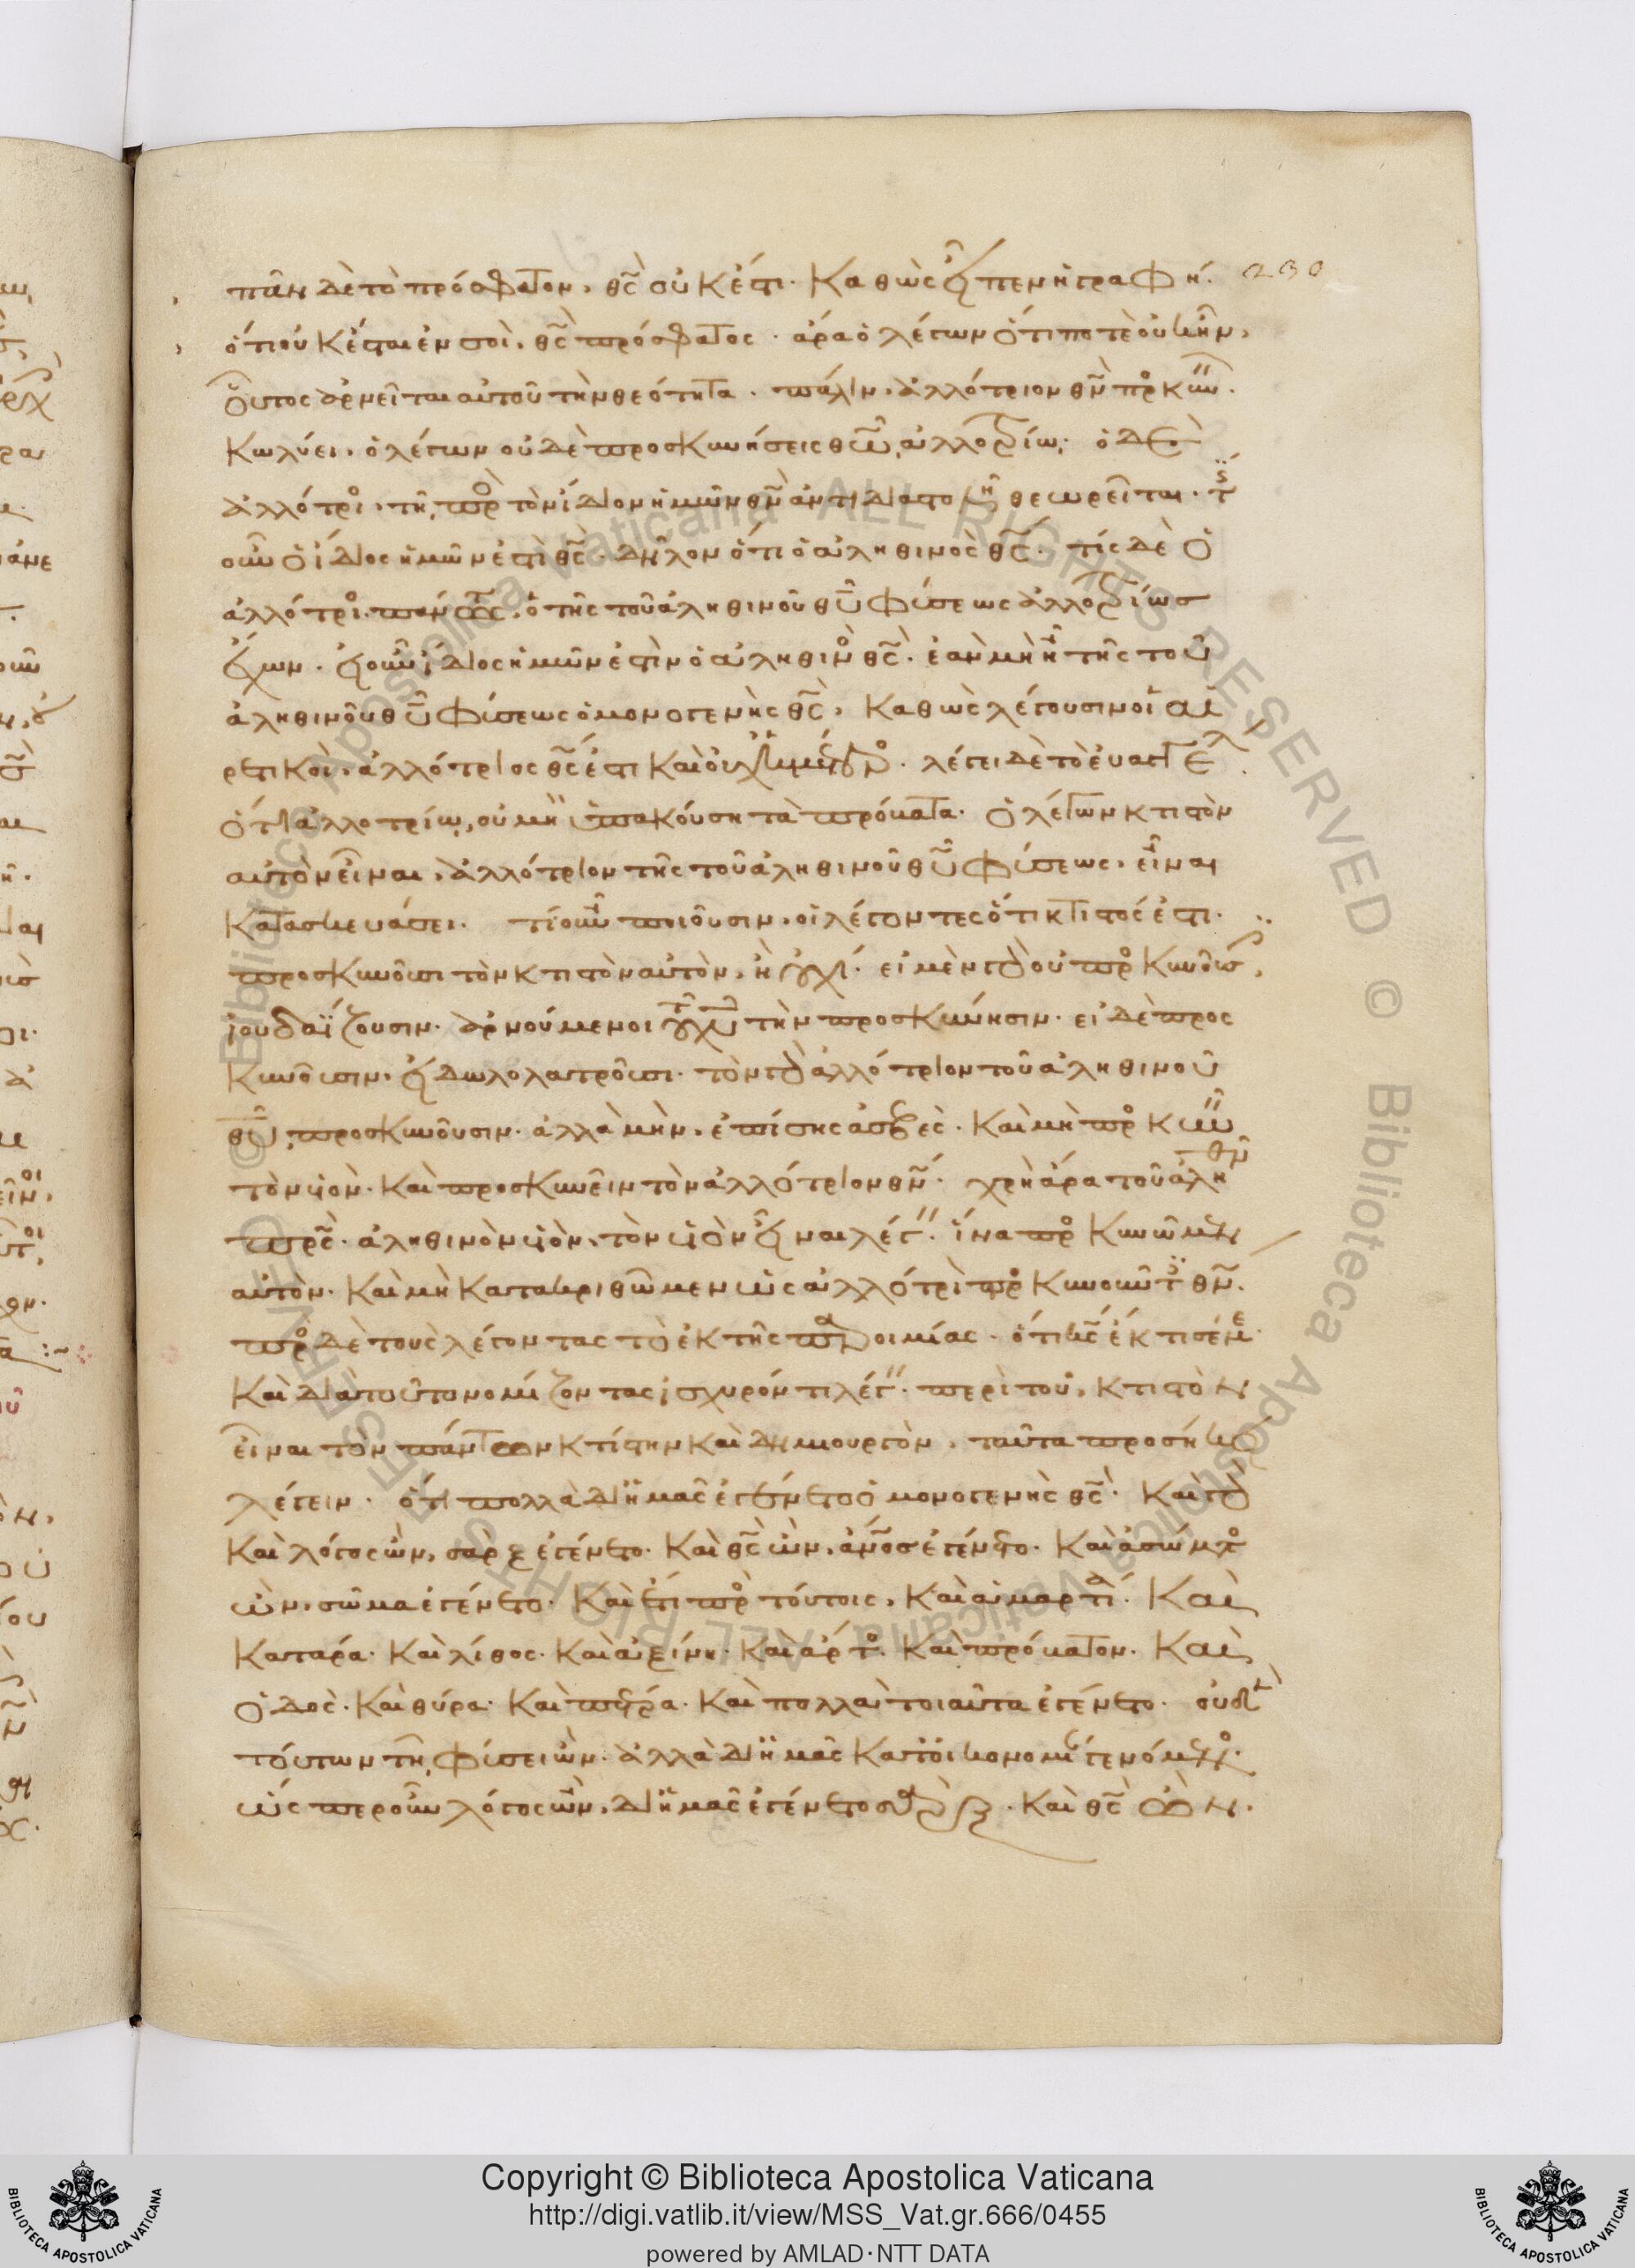 πᾶν δὲ τὸ πρόσφατον, θς̃ οὐκ ἔστι. καθὼς εἶπεν ἡ γραφή. 230
ὅτι οὐκ ἔσται ἐν σοὶ, θς̃ πρόσφατος. ἄρα ὁ λέγων ὅτι ποτὲ οὐκ ἦν,
οὗτος ἀρνεῖται αὐτοῦ τὴν θεότητα. πάλιν, ἀλλότριον θν̃ προσκυνεῖν
κωλύει, ὁ λέγων οὐδὲ προσκυνήσεις θῶ ἀλλοτρίω. ὁ δὲ
ἀλλότριος τῆ πρὸς τὸν ἴδιον ἡμῶν θν̃ ἀντιδιαστολῆ θεωρεῖται. τίς
οὖν ὁ ἴδιος ἡμῶν ἐστι θς̃. δῆλον ὅτι ὁ ἀληθινὸς θς̃. τίς δὲ ὁ
ἀλλότριος πάντως, ὁ τῆς τοῦ ἀληθινοῦ θῦ φύσεως ἀλλοτρίως
ἔχων. εἰ οὖν ἴδιος ἡμῶν ἐστὶν ὁ ἀληθινὸς θς̃. ἐὰν μὴ ἦ τῆς τοῦ
ἀληθινοῦ θῦ φύσεως ὁ μονογενὴς θς̃, καθὼς λέγουσιν οἱ αἱ
ρετικοὶ, ἀλλότριος θς̃ ἐστι καὶ οὐχ ἡμέτερος. λέγει δὲ τὸ εὐαγγέλ
ὅτι ἀλλοτρίω, οὐ μὴ ὑπακούση τὰ πρόβατα. ὁ λέγων κτιστὸν
αὐτὸν εἶναι, ἀλλότριον τῆς τοῦ ἀληθινοῦ θῦ φύσεως, εἶναι
κατασκευάσει. τί οὖν ποιοῦσιν, οἱ λέγοντες ὅτι κτιστός ἐστι.
προσκυνοῦσι τὸν κτιστὸν αὐτὸν, ἢ οὐχί. εἰ μὲν γὰρ οὐ προσκυνοῦσιν,
ἰουδαΐζουσιν. ἀρνούμενοι τοῦ χῦ τὴν προσκύνησιν. εἰ δὲ προς
κυνοῦσιν, εἰδωλολατροῦσι. τὸν γὰρ ἀλλότριον τοῦ ἀληθινοῦ
θῦ, προσκυνοῦσιν. ἀλλὰ μὴν, ἐπίσης ἀσεβὲς. καὶ μὴ προσκυνεῖν
τὸν υἱὸν. καὶ προσκυνεῖν τὸν ἀλλότριον θν̃. χρὴ ἄρα τοῦ ἀληθιν
πρς̃. ἀληθινὸν υἱὸν, τὸν υἱὸν εἶναι λέγειν. ἵνα προσκυνῶμεν
αὐτὸν. καὶ μὴ κατακριθῶμεν ὡς ἀλλότριον προσκυνοῦντες θν̃.
πρὸς δὲ τοὺς λέγοντας τὸ ἐκ τῆς παροιμίας. ὅτι κς̃ ἔκτισέ με
καὶ διὰ τοῦτο νομίζοντας ἰσχυρόν τι λέγειν. περὶ τοῦ, κτιστὸν
εἶναι τὸν πάντων κτίστην καὶ δημιουργὸν, ταῦτα προσήκει
λέγειν. ὅτι πολλὰ δι' ἡμᾶς ἐγένετο ὁ μονογενὴς θς̃. καὶ γὰρ
καὶ λόγος ὢν, σὰρξ ἐγένετο. καὶ θς̃ ὢν, ἄνος ἐγένετο. καὶ ἀσώματος
ὢν, σῶμα ἐγένετο. καὶ ἔτι πρὸς τούτοις, καὶ ἁμαρτία. καὶ
κατάρα. καὶ λίθος. καὶ ἀξίνη. καὶ ἄρτος. καὶ πρόβατον. καὶ
ὁδὸς. καὶ θύρα. καὶ πέτρα. καὶ πολλὰ τοιαῦτα ἐγένετο. οὐδὲν
τούτων τῆ φύσει ὢν. ἀλλὰ δι' ἡμᾶς κατ' οἰκονομίαν γενόμενος.
ὥσπερ οὖν λόγος ὢν, δι' ἡμᾶς ἐγένετο σάρξ. καὶ θς̃ ὢν.